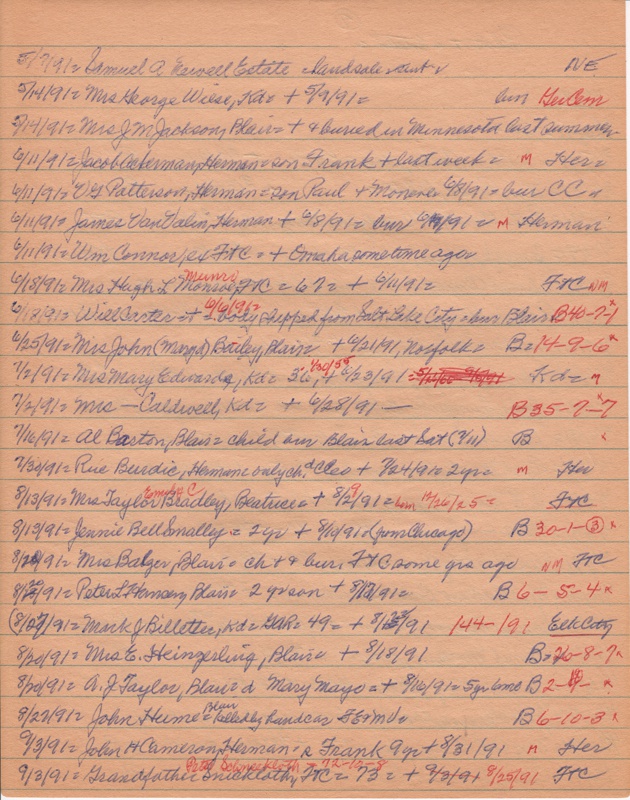 5/7/91 = Samuel A Newell Estate landsale NE
5/14/91 = Mrs George Wiese, Kd = + 5/9/91 = bur Ger Cem
5/14/91 = Mrs J M Jackson, Blair = + & buried in Minnesota last summer
6/11/91 = Jacob Ackerman, Herman = son Frank + last week = M Her =
6/11/91 = V G Patterson, Herman = son Paul + Monroe 6/8/91 = bur CC
6/11/91 = James VanValin, Herman + 6/8/91 = bur 6/9/91 = M Herman
6/11/91 = Wm Connor, ex FtC = + Omaha sometime ago
6/18/91 = Mrs Hugh L Monroe, Munro FtC = 67 = + 6/11/91 = FtC NM
6/18/91 = Will Carter = + 6/6/91 = body shipped from Salt Lake City = bur Blair B40-7-1 x
6/25/91 = Mrs John (Margd) Bailey, Blair = + 6/21/91, Norfolk = B = 14-9-6 x
7/2/91 = Mrs Mary Edwards, Kd = 36, 4/30/55 + 6/23/91 = Kd = M
7/2/91 = Mrs — Caldwell, Kd = + 6/28/91 — B35-7-7 x
7/16/91 = Al Barton, Blair = child bur Blair last Sat (7/11) B x
7/30/91 = Rue Burdic, Herman = only ch, d Cleo + 7/24/91 = 2 yr = M Her
8/13/91 = Mrs Taylor Bradley, C Beatrice = + 8/2/91 = born 12/26/25 = FtC
8/13/91 = Jennie Bell Smalley = 2 yr + 8/10/91 = (from Chicago) B 30-1-3 x
8/20/91 = Mrs Badger, Blair = ch + & bur, FtC some yrs ago NM FtC
8/91 = Peter L Hansen, Blair = 2 yr son + 8/91 = B6-5-4 x
(8/27/91 = Mark J Billetter, Kd = GAR = 49 = + 8/23/91 144-191 Elk City
8/20/91 = Mrs E. Heingerling, Blair + 8/18/91 B = 20-8-7 x
8/20/91 = A. J Taylor, Blair = d Mary Maye = + 8/16/91 = 5 yr 6 mo B2- x
8/27/91 = John Hume = Blair = killed by handcar B6-10-3 x
9/3/91 = John H Cameron, Herman = s Frank 9 yr + 8/31/91 M Her
9/3/91 = Grandfather Snickloth, Peter Schneckloth = 72-10-8 FtC = 73 = + 9/3/91 8/25/91 FtC